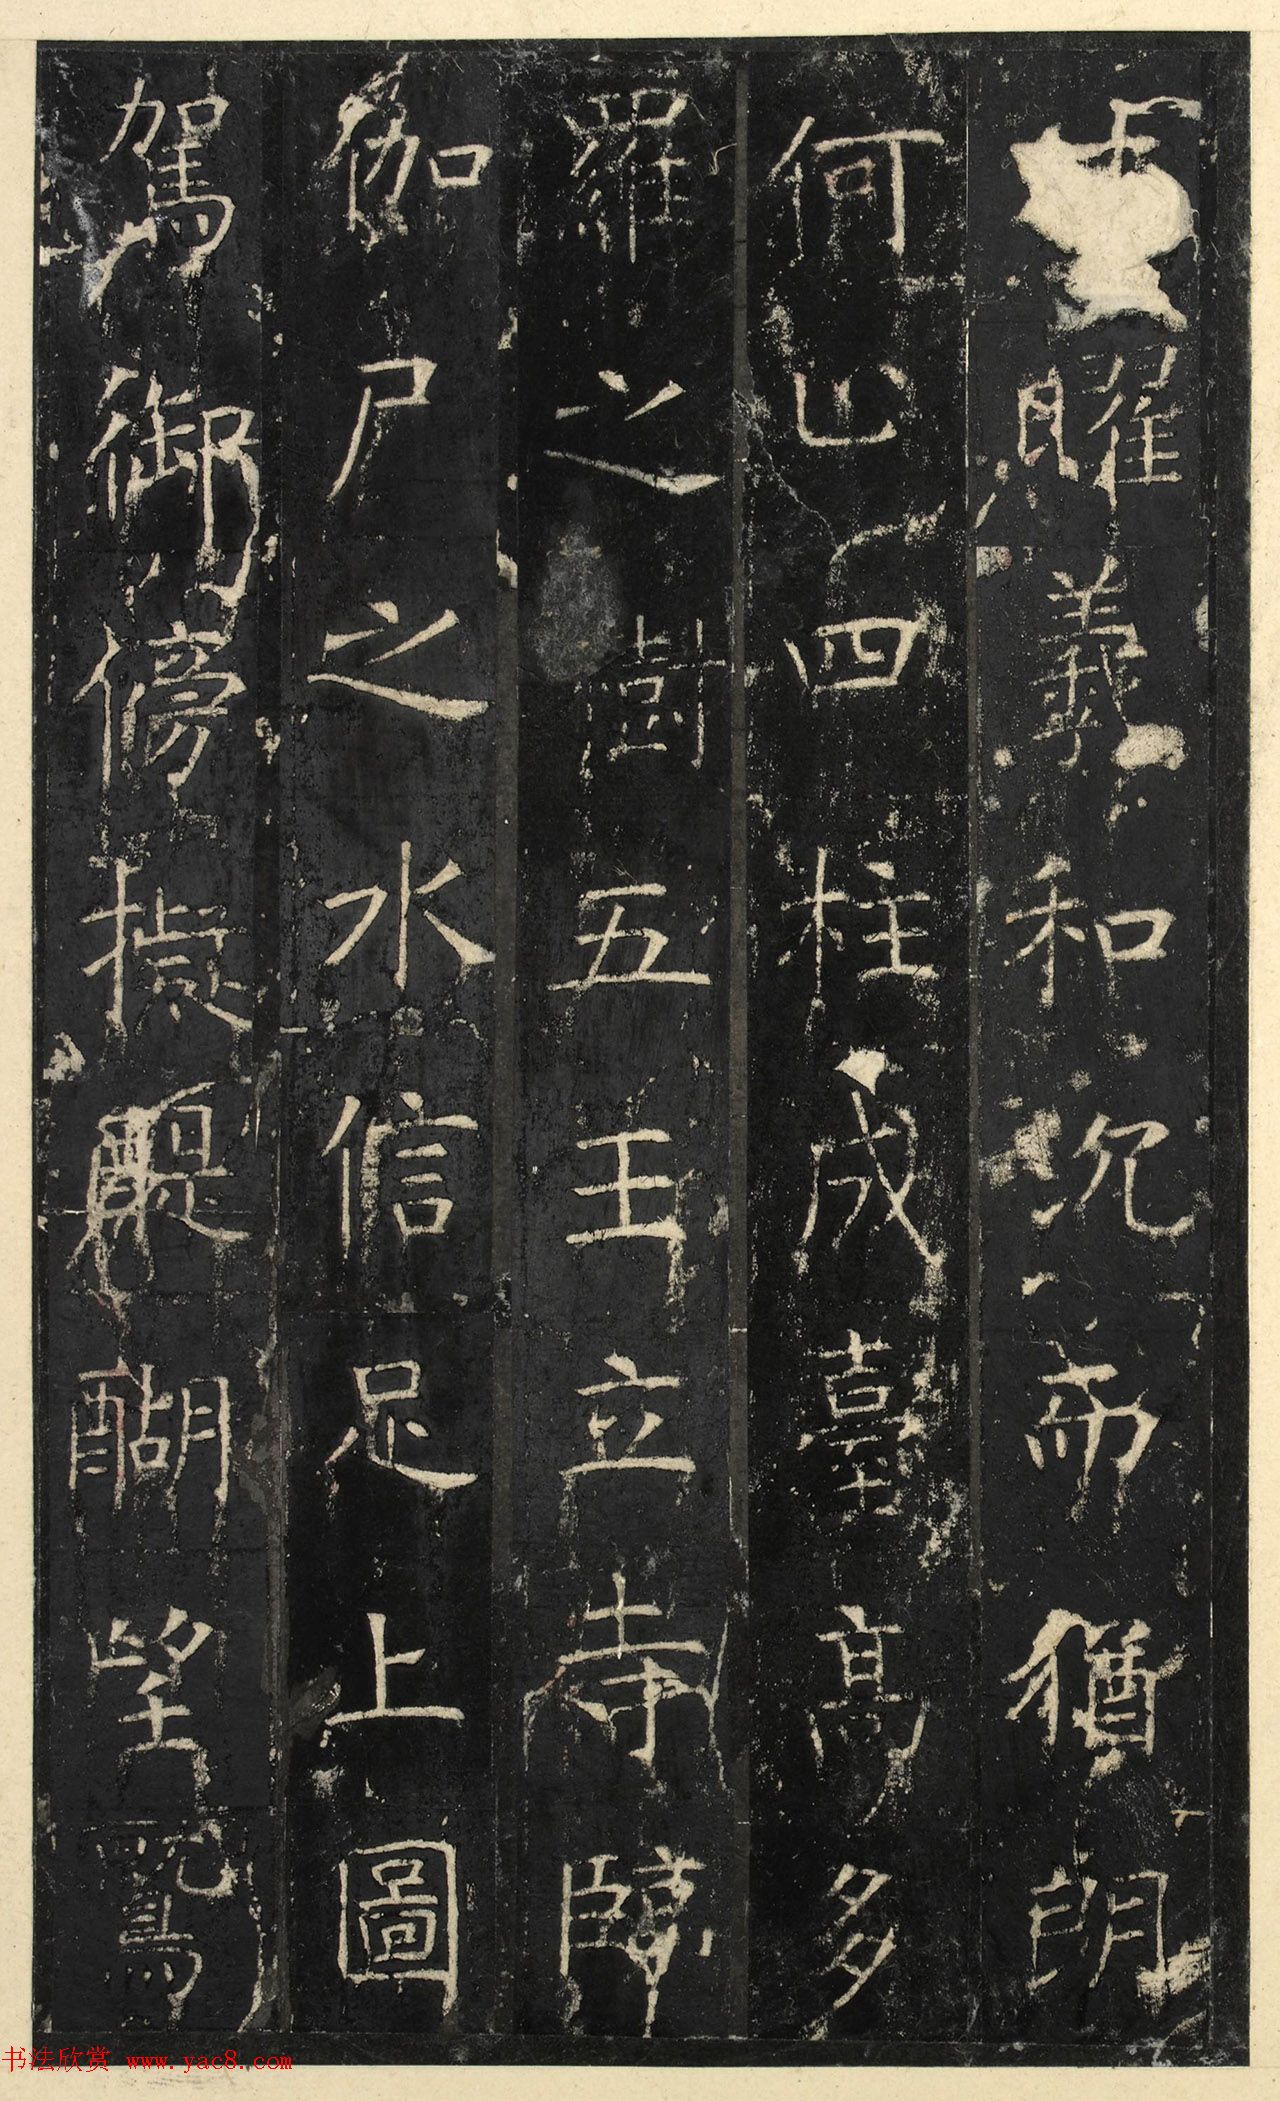 曜義和沉而猶朗
何山四柱成臺高多
羅之樹五王立寺臨
伽尸之水信足上圖
駕御傍擬醍醐望鷲
书法欣赏 www.yac8.com